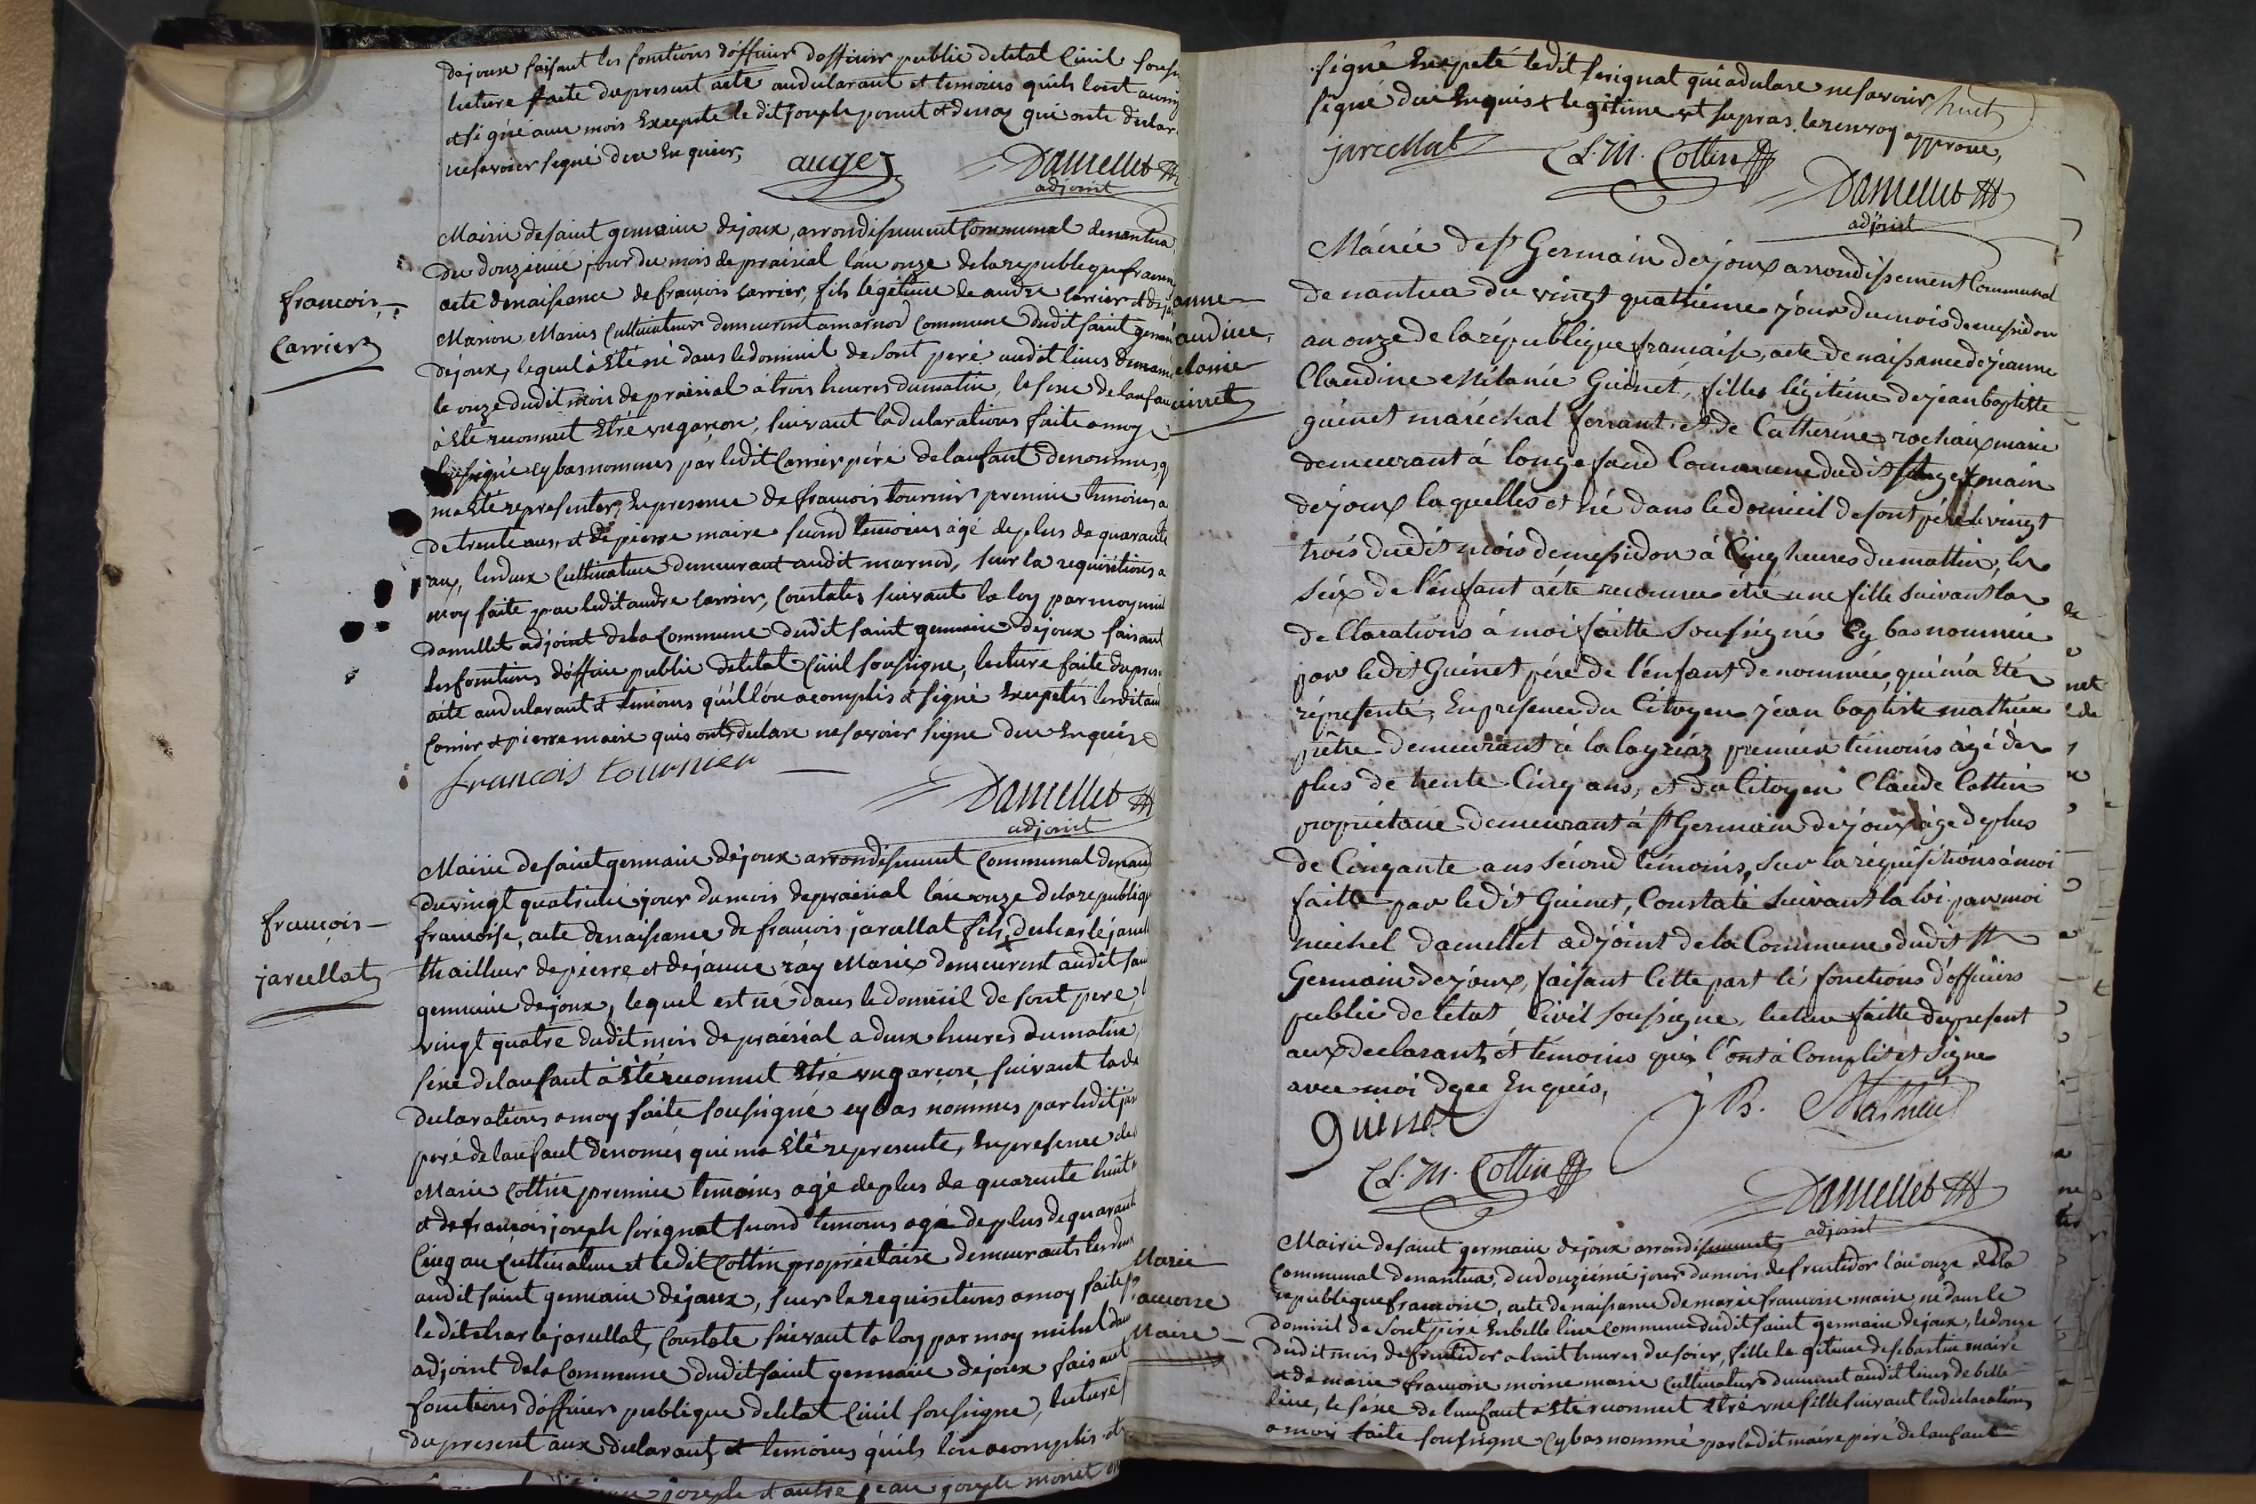 dejoux faisant les fonctions d'officier d'officier public de letat Civil sousi
lecture faite du present acte au déclarant et temoins quils lont acomp
et signé avec mois Excepté le dit joseph ponut et demoy qui onte declar
ne savoir signé deu Enquier,
auger Damellet
adjoint
françois
Carrier
Mairie de saint germain dejoux, arrondissement Communal de nantua
du douzieme jour du mois de prairial l'an onze de la republique francai
acte de naissance de françois Carrier, fils legétime de andre Carrier et de
Marion Maries Cultivateur demeurent a marnod Commune dudit saint germai
dejoux, lequel à Eté né dans le domicil de sont peré audit lieus de marn
le onze dudit mois de prairial à trois heures dumatin, le sexe de lanfan
à Eté reconnut Etré un garçon, suivant la declarations faite a moy
sousigné cy bas nommes par ledit Carrier péré de lanfant denommes q
ma Eté representer, En presence de francois tournier premier temoins a
de trente ans, et de pierre maire second temoins agé de plus de quarante
ans, les deux Cultivateur demeurant audit marnod, sur la requisitions a
moy faite par ledit andre Carrier, Constaté suivant la loy par moy mi
damellet adjoint de la Commune dudit saint germain dejoux faisant
les fonctions d'officie public de letat Civil sousigne, lecture faite du prese
acte au declarant et temoins quil lon acomplis et signé Exceptés ledit an
Carrier et pierre maire quis ont declare ne savoir signe deu Enquis
francois tournier
Damellet
adjoint
françois
jarcellat
Mairie de saint germain dejoux arrondissement Communal de nan
du vingt quatrieme jour du mois de prairial l'an onze de la republiqu
francoise, acte de naissance de françois jarcellat fils de charle jarcell
thailleur de pierre et de janne ray Maries demeurent audit sai
germain dejoux, lequel est né dans le domicil de sont pere
vingt quatre dudit mois de prairial a deux heures du matin
séxe de lanfant à Eté reconnut Etré un garcon, suivant la de
declarations a moy faite sousigné cy bas nommes par ledit jar
peré de lanfant denomés qui ma Eté represente, En presence de
Marie Cottin premier temoins agé de plus de quarente huit
et de françois joseph serignat second temoins agé de plus de quarant
Cinq an Cultivateur et ledit Cottin propriétaire demeurants les deux
audit saint germain dejoux, sur la requisitions a moy faite p
le dit charle jarcellat, Constate suivant la loy par moy mihel dam
adjoint de la Commune dudit saint germain dejoux faisant
fonctions d'officier publique de letat Civil sousigne, lecture
du present aux declarant et temoins quils lon acomplis et
joseph et autre jean joseph monet
signé Excepté ledit serignat qui a declare ne savoir
signé deu Enquis + legitime et supras. le renvoy approuve,
jarcellat Cl. M. Cottin
Damellet
adjoint
anne
audine
elanie
uinet
Mairie de st Germain dejoux arrondissement Communal
de nantua du vingt quatriéme jour du mois de messidor
an onze de la république francaise, acte de naissance de jeanne
Claudine Mélanie Guinet, filles légitime de jean baptiste
guinet maréchal ferrant et de Catherine rochaix marié
demeurant à longefand Commune dudit st germain
dejoux laquelles et né dans le domicil de sont père le vingt
trois dudit mois de messidor à Cinq heures du mattin, le
séix de l'énfant aété reconnu étré une fille suivant la
déllarations à moi faitte sousigné Cy bas nommée
par ledit Guinet pére de l'énfant denommée, qui m'a Eté
répresenté, En présence du Citoyen jéan baptiste mathieu
prêtre demeurant à la layriaz premier témoins âgé de
plus de trente Cinq ans, et du Citoyen Claude Cottin
propriétaire demeurant à st Germain dejoux âgé de plus
de Cinqante ans sécond témoins, sur la réquisitions à moi
faitte par ledit Guinet, Constaté suivant la loi par moi
michel damellet adjoint de la Commune dudit st
Germain dejoux, faisant Cette part lés fonctions d'officiers
public de letat Civil sousigne, lecture faitte du present
aux declarant, ét témoins quis l'ont à Complit et Signe
avec moi de ce Enquis,
guinet J B. Mathieu
Cl. M. Cottin
Damellet
adjoint
Marie
ancoise
Maire
Mairie de saint germain dejoux arrondissement
Communal de nantua, du douziémé jour du mois de fructidor l'an onze de la
republique francoise, acte de naissance de marie francoise maire né dans le
domicil de sont péré En belle lieue Commune dudit saint germain dejoux, le douze
dudit mois de fructidor a huit heures du soier, fille legitime de sebastien maire
et de marie francoise moine marie Cultivateur demeurt audit lieus de belle
lieue, le séxe de lanfant a Eté reconnut Etré une fille suivant la declaration
a moy faite sousigne Cy bas nommé par ledit maire péré de lanfant